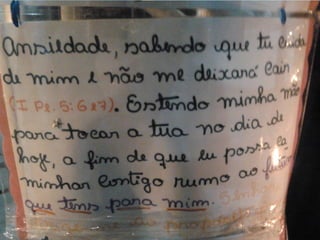 ansiedade, sabendo que tu cuida
de mim e não me deixará cair
(I Pe. 5:6 e 7). Estendo minha mão
para tocar a tua no dia de
hoje, a fim de que eu possa ca
minhar contigo rumo ao futuro
que tens para mim.